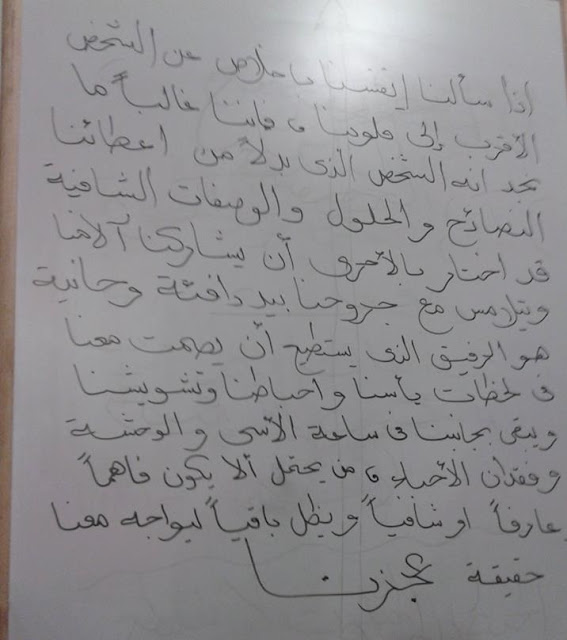 اذا سألنا انفسنا باخلاص عن الشخص
الأقرب إلى قلوبنا، فإننا غالباً ما
نجد انه الشخص الذى بدلاً من اعطائنا
النصائح والحلول والوصفات الشافية
قد اختار بالأحرى أن يشاركنا آلامنا
ويتلامس مع جروحنا بيد دافئة وحانية
هو الرفيق الذى يستطيع أن يصمت معنا
فى لحظات يأسنا واحباطنا وتشويشنا
ويبقى بجانبنا فى ساعة الأسى والوحشة
وفقدان الأحباء، من يحتمل ألا يكون فاهماً
عارفاً او شافياً ويظل باقياً ليواجه معنا
حقيقة عجزنا